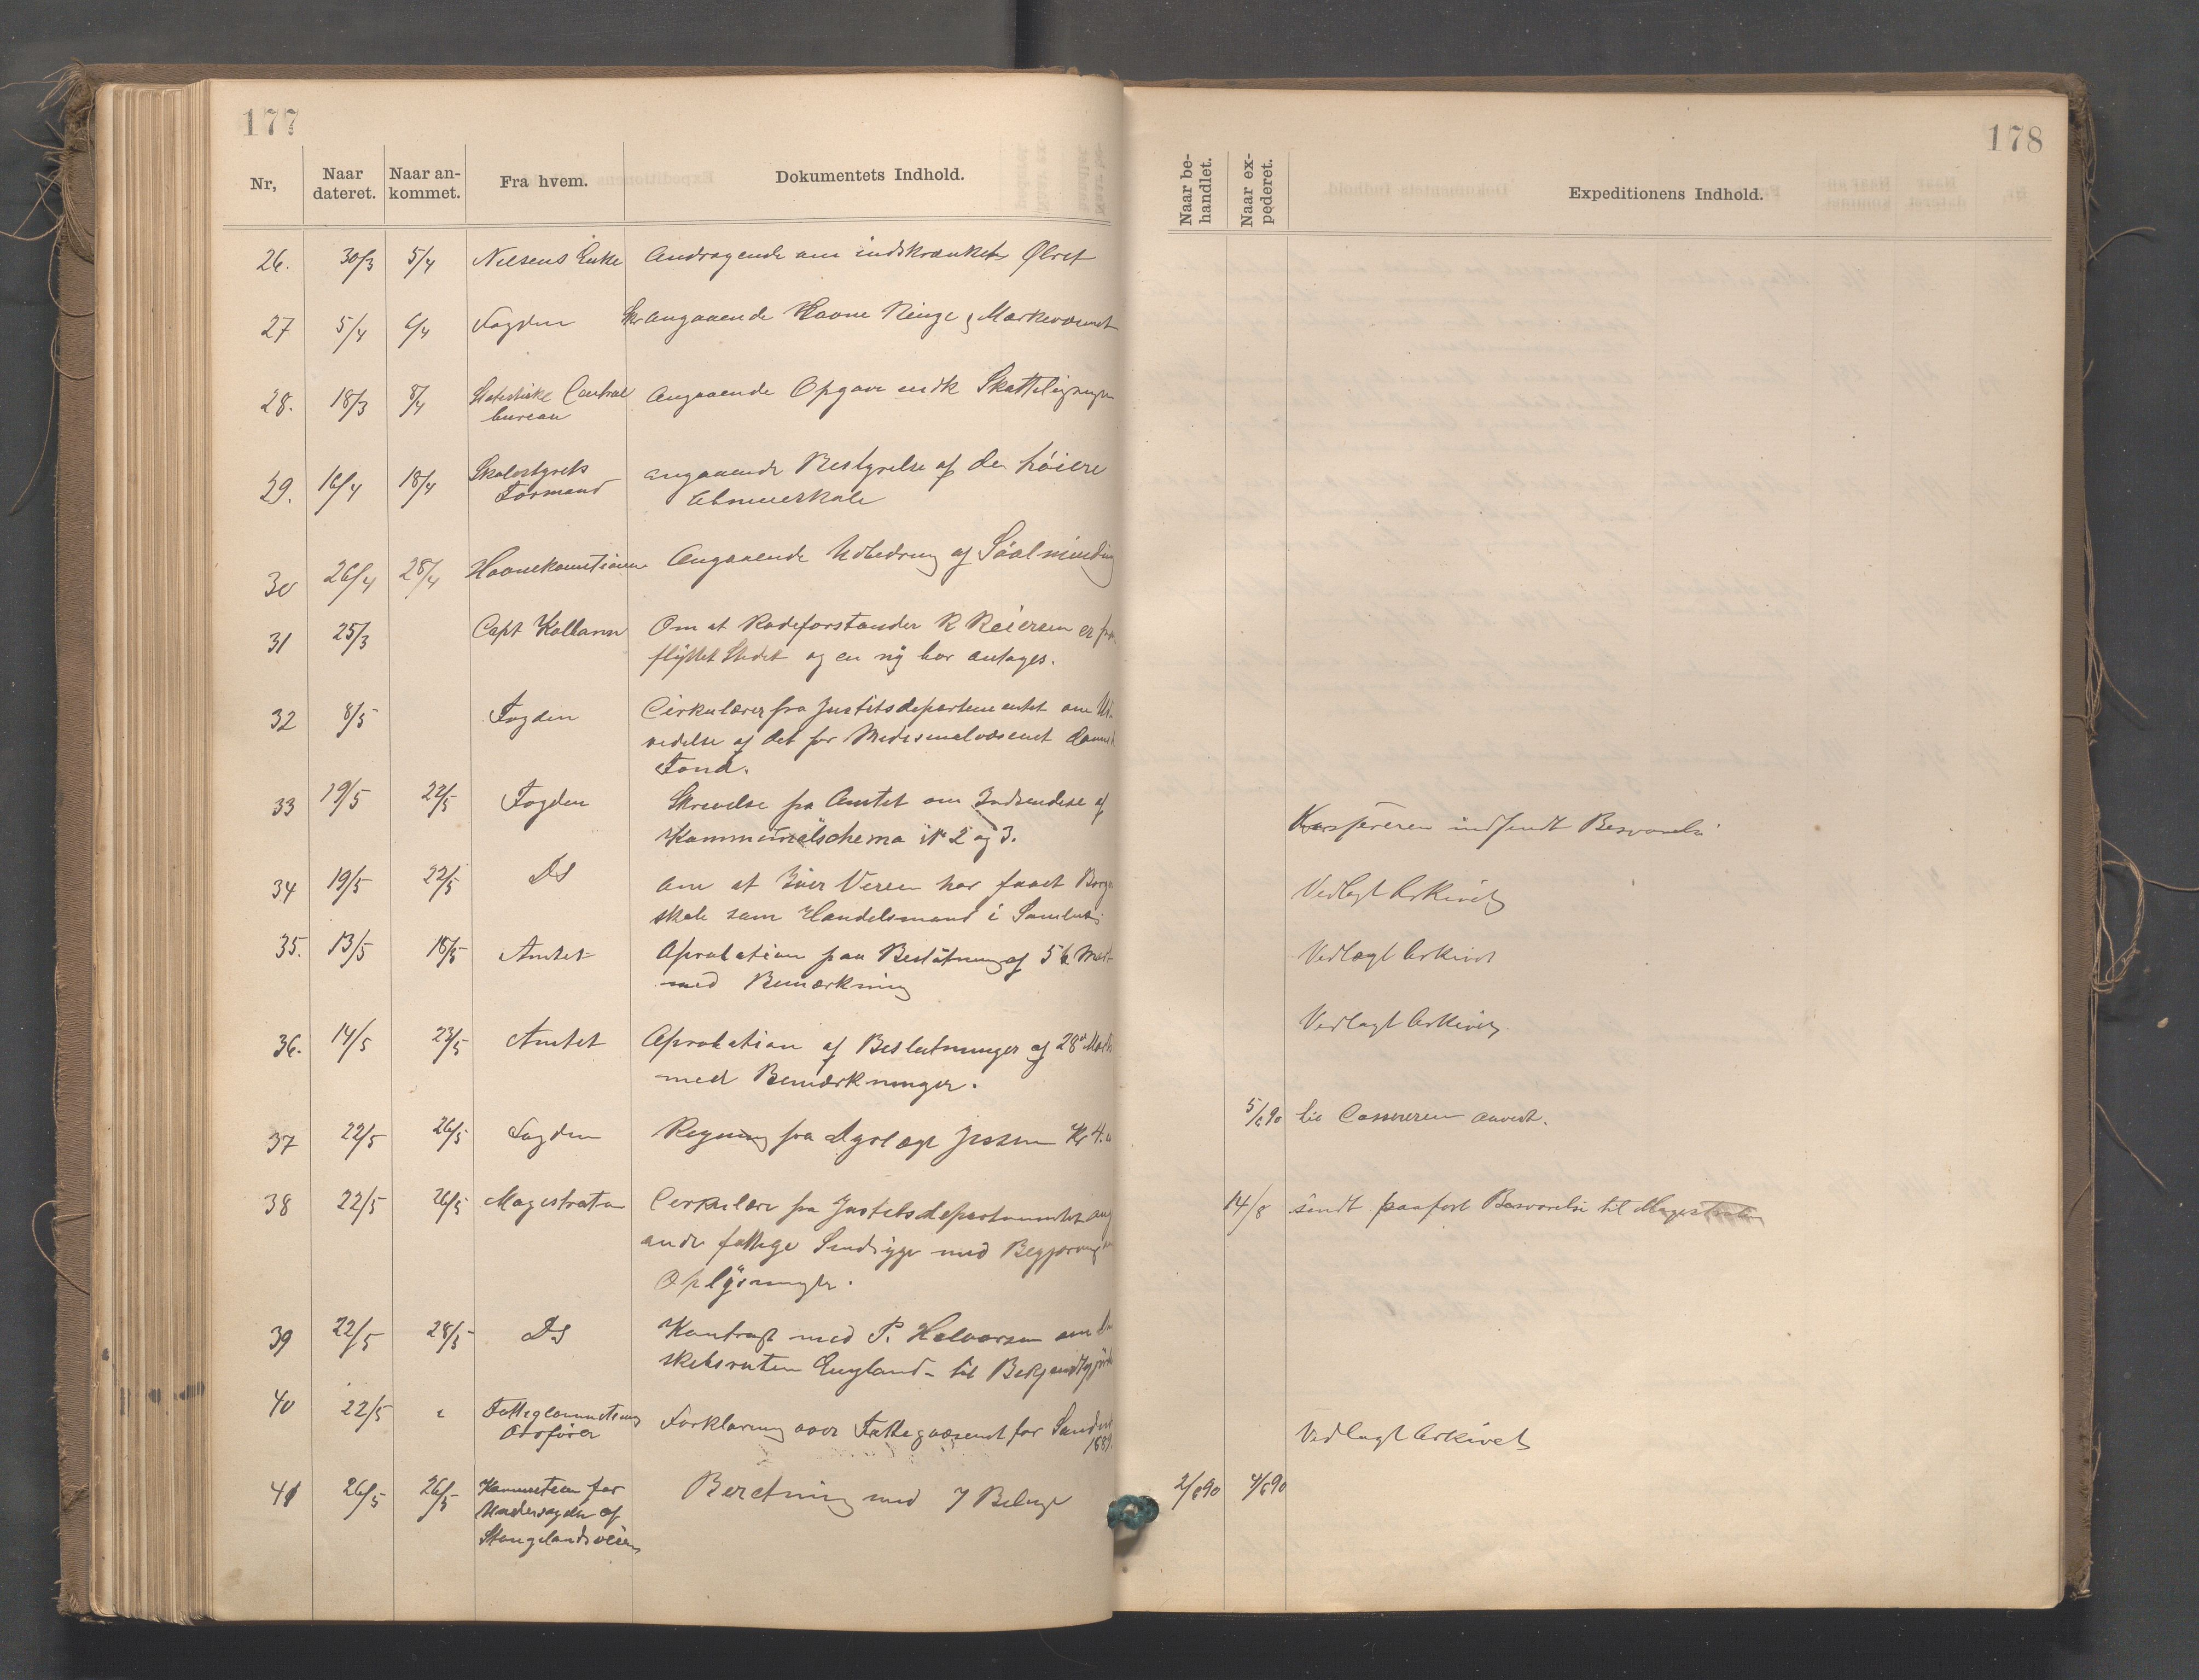 177
Nr, Naar dateret. Naar an-kommet. Fra hvem. Dokumentets Indhold.
26. 30/3 5/4 Nilsens Enke Andragende om indskrænket Ølret
27 5/4 6/4 Fogden Skr angaaende Havne Penge & Mærkevæsenet
28. 18/3 8/4 Statistiske Central angaaende Opgave Skatteligningen
bureau
29. 16/4 18/4 Skolestyrets angaaende Bestyrelse af den høiere
Formand Almueskole
30 26/4 28/4 Havnekomitionen Angaaende Udbedring af Søalminding
31 25/3 Capt Kolbann Om at Rodeforstander R Reiersen er fra
flyttet Stedet og en ny bør antages.
32 8/5 Fogden Cirkulærer fra Justitsdepartementet om Ud
videlse af det for Medisinalvæsenet dannede
Fond.
33 19/5 22/5 Fogden Skrivelse fra Amtet om Indsendelse af
Kommunalschema No 2 og 3.
34 19/5 22/5 DS om at Iver Veren har faaet Borger
skab som Handelsmand i
35. 13/5 18/5 Amtet Aprobation paa Beslutning af 5te Mart
med Bemærkning
36. 14/5 23/5 Amtet Aprobation af Beslutninger af 28de Marts
med Bemærkninger.
37 22/5 26/5 Fogden Regning fra Dyrlæge Jessen Kr 4.
38 22/5 26/5 Magistraten Cirkulære fra Justitsdepartementet ang
ande fattige Sindsyge med Begjæring om
Oplysninger.
39 22/5 28/5 DS Kontrakt med P. Halvorsen om
skibsruten England – til Bekjendtgjørelse
40 22/5 " Fattigcommitions Forklaring over Fattigvæsenet for
Ordfører 1889.
41 26/5 26/5 Kommiteen for Beretning med 7 Bilage
Undersøgelse af
Stangelandsveien
178
Naar be-handlet. Naar ex-pederet. Expeditionens Indhold.
Kassereren indsendt Besvarelse
Vedlagt Arkivet
Vedlagt Arkivet
Vedlagt Arkivet
5/6 90 til Cassereren anvist.
14/8 sendt paaført Besvarelse til Magistraten
Vedlagt Arkivet
2/6 90 4/6 90